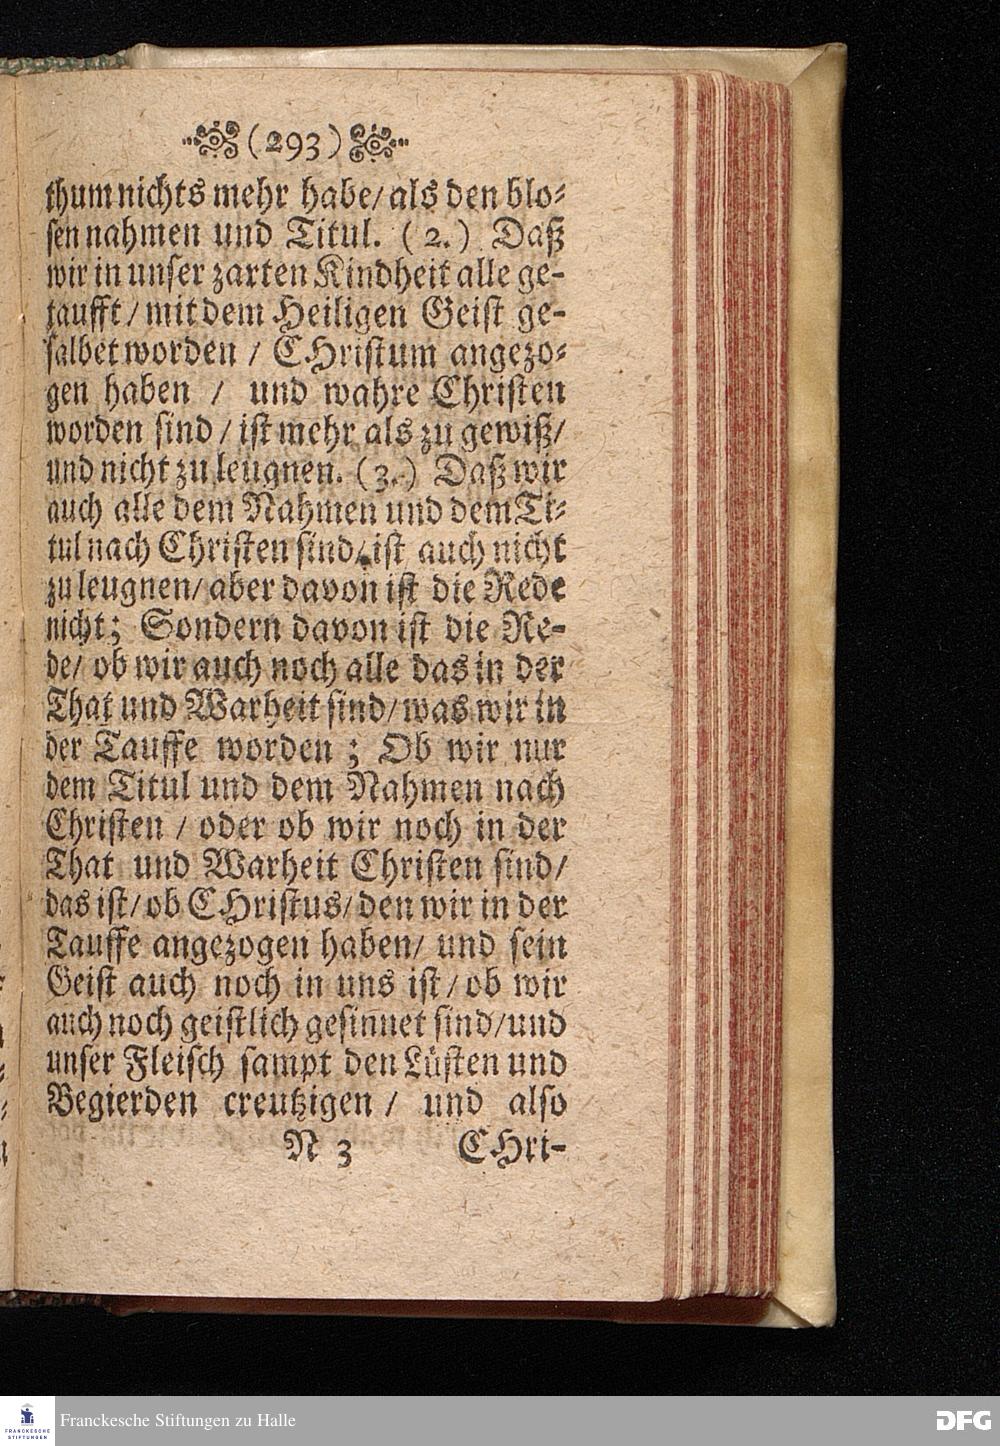 (293)
thum nichts mehr habe/ als den blo⸗
sen nahmen und Titul. (2.) Daß
wir in unser zarten Kindheit alle ge-
taufft/ mit dem Heiligen Geist ge-
salbet worden / CHristum angezo⸗
gen haben / und wahre Christen
worden sind / ist mehr als zu gewiß/
und nicht zu leugnen. (3.) Daß wir
auch alle dem Nahmen und dem Ti⸗
tul nach Christen sind/ ist auch nicht
zu leugnen/ aber davon ist die Rede
nicht; Sondern davon ist die Re-
de/ ob wir auch noch alle das in der
That und Warheit sind/ was wir in
der Tauffe worden ; Ob wir nur
dem Titul und dem Nahmen nach
Christen / oder ob wir noch in der
That und Warheit Christen sind/
das ist/ ob CHristus/ den wir in der
Tauffe angezogen haben/ und sein
Geist auch noch in uns ist/ ob wir
auch noch geistlich gesinnet sind/ und
unser Fleisch sampt den Lüsten und
Begierden creutzigen / und also
N 3 CHri-
FRANCKESCHE STIFTUNGEN
Franckesche Stiftungen zu Halle
DFG